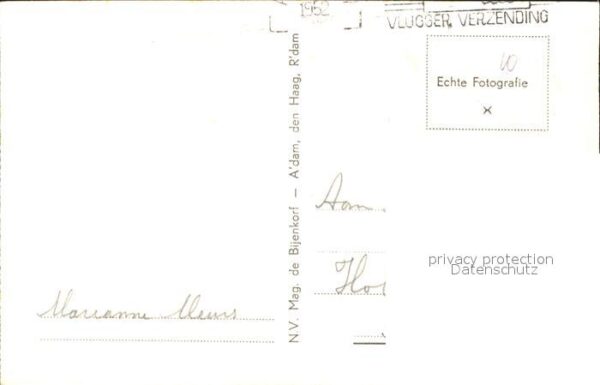 1952
VLUGGER VERZENDING
10
Echte Fotografie
N.V. Mag. de Bijenkorf – A'dam, den Haag, R'dam
Aan
privacy protection
Datenschutz
Marianne Meurs